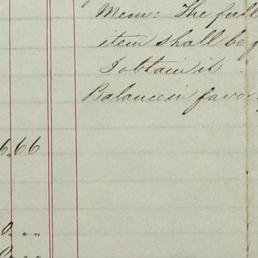 Mem: The full
item shall be g
I obtain it.
Balance in favor
6.66
0 ..
0 ..